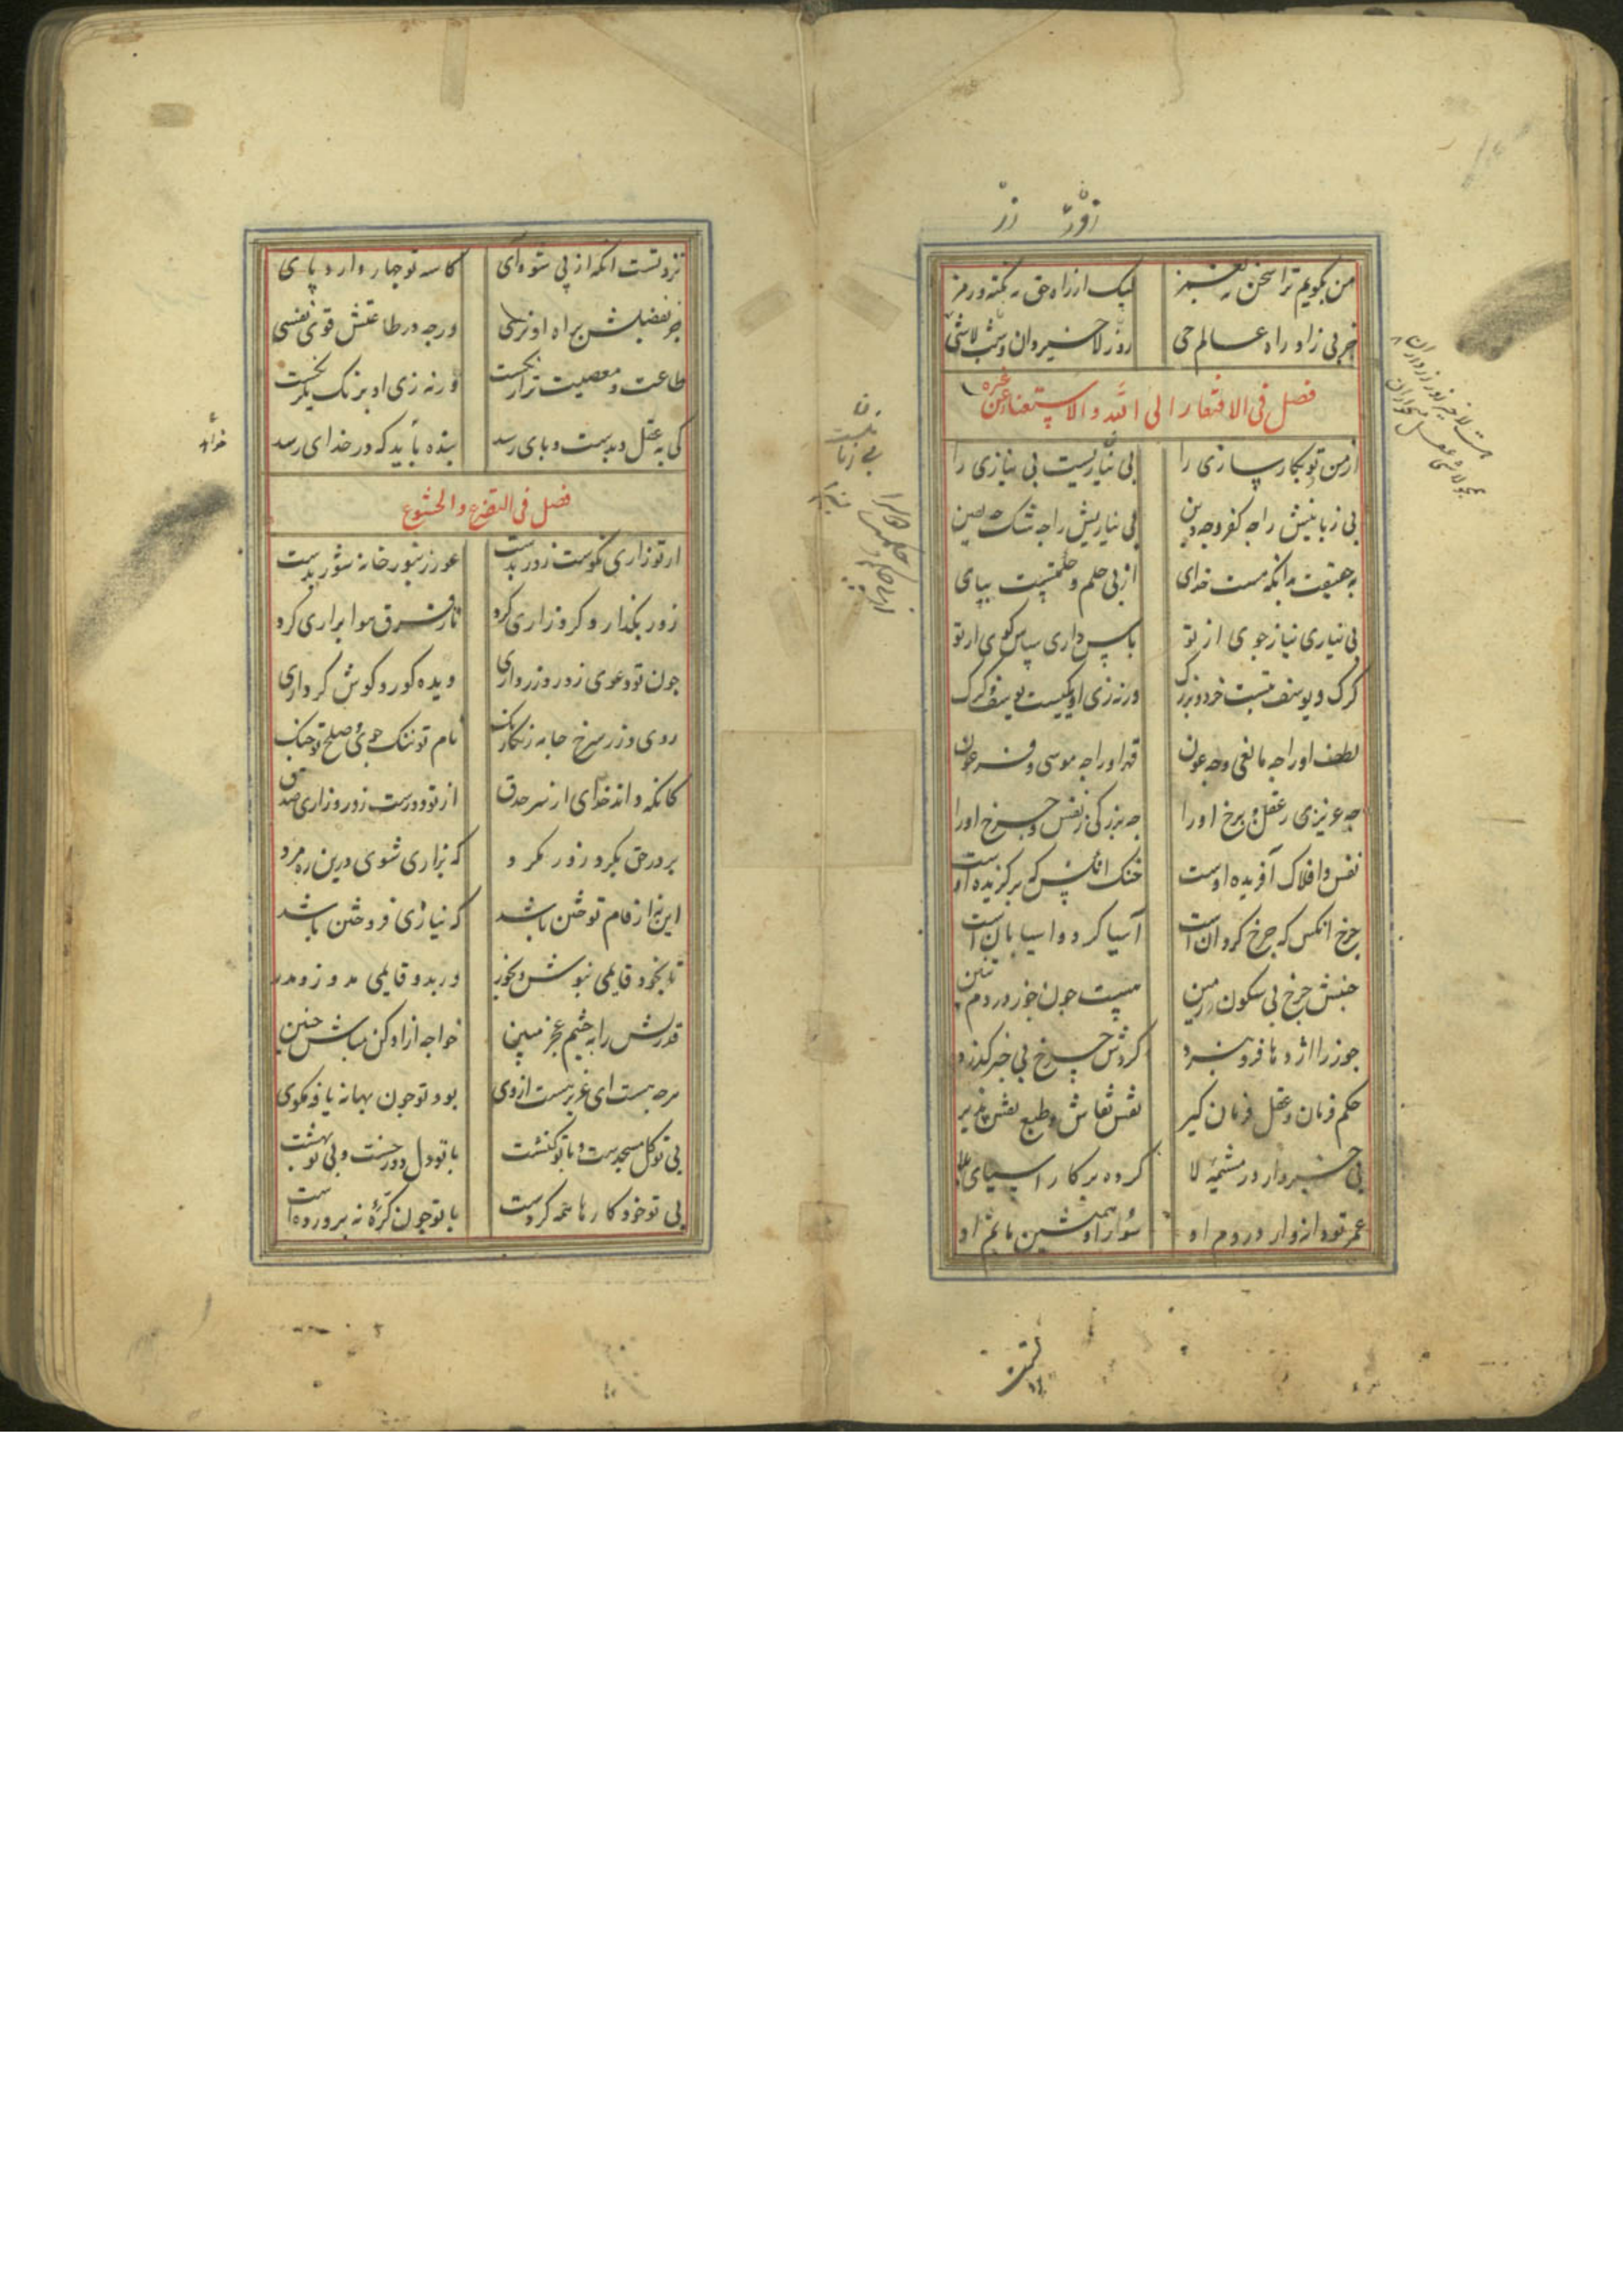 من بگویم ترا سخن نه بغمز لیک از راه حق نه نکته و رمز
خربی زاد راه عالم حی روز لاخیر دان و شب لاشی
فصل فی الافتقار الی الله والاستغناء عن غیره
از من و تو بکار سازی را بی نیازیست بی نیازی را
بی زبانیش را چه کفر و چه دین بی نیازیش را چه شک چه یقین
به حقیقت بدانکه هست خدای از پی حکم و حکمتست بپای
بی نیازی نیاز جوی از تو پاس داری سپاس کوی از تو
کرک و یوسف تست خرد و بزرک ورنه زی او یکیست یوسف و کرک
لطف او را چه مانعی و چه عون قهر او را چه موسی و فرعون
چه عزیزی ز عقل و برخ او را چه بزرکی ز نفس و چرخ او را
نفس و افلاک آفریده اوست خنک انکس که برکزیده اوست
چرخ و انکس که چرخ کردانست آسیا کرد و اسیابانست
جنبش چرخ بی سکون زمین هست چون جوز در دم تنین
جوز را اژدها فرو نبرد کردش چرخ بی خبر کذرد
حکم فرمان و عقل فرمان کیر نفس نقاش و طبع نقش پذیر
بی خبروار در مشیمه لا کرده بر کار اسیای بلا
عمر تو دانه وار در دم او سور او همنشین ماتم او
نزد تست انکه از پی شوه آی کاسه تو چهار دارد پای
جز بفضلش براه او نرسی ورچه در طاعتش قوی نفسی
طاعت و معصیت ترا ننکست ورنه زی او برنک یکرنکست
کی به عقل و بدست و پای رسد بنده باید که در خدای رسد
فصل فی التضرع والخشوع
از تو زاری نکوست زور بدست عور زنبور خانه شور بدست
زور بکذار و کرد زاری کرد تا ز فرق هوا براری کرد
چون تو دعوی زور و زر داری دیده کور و کوش کر داری
روی و زر سرخ جامه رنکارنک نام تو ننک جوی و صلح تو جنک
کانکه داند خدای از سر حدق از تو دورست زور و زاری صدق
بر در حق بکرد زور مکرد که بزاری شوی درین ره مرد
این نه از فام توختن باشد که نیازی فروختن باشد
تا بخود قایمی بپوش و بخور ور بدو قایمی مدوز و مدر
قدرتش را به چشم عجز مبین خواجه ازادکن مباش چنین
هرچه هست ای عزیز هست از وی بود تو چون بهانه یافه مکوی
بی تو کل مسجدست و با تو کنشت با تو دل دوزخست و بی تو بهشت
بی تو خود کارها همه کردست با تو چون کره نه پروردست
خداید